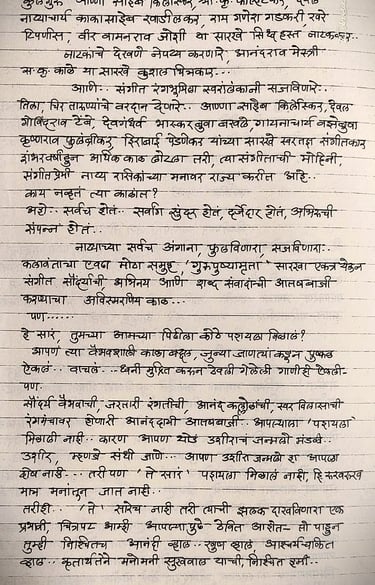 नाट्याचार्य काकासाहेब खाडीलकर, राम गणेश गडकरी, खरे
टिपणीस, वीर वामनराव जोशी या सारखे सिध्द हस्त नाटककार..
नाटकाचे देखणे नेपथ्य करणारे, आनंदराव मेस्त्री
स. कृ. काळे या सारखे कुशल चित्रकार...
आणि.. संगीत रंगभूमिला स्वरालंकारांनी सजविणारे..
तिला, चिर तारुण्यांचे वरदान देणारे.. आण्णा साहेब किर्लोस्कर, देवल
गोविंदराव टेंबे, देवगंधर्व भास्करबुवा बखले, गायनाचार्य वझेबुवा
कृष्णराव फुलंब्रीकर, हिराबाई बडोदेकर यांच्या सारखे स्वरतज्ञ संगीतकार
शंभर वर्षांहून अधिक काळ लोटला तरी, त्या संगीताची मोहिनी,
संगीतप्रेमी नाट्य रसिकांच्या मनावर राज्य करीत आहे..
काय नव्हतं त्या काळात?
अहो.. सर्वच होतं.. सर्वांग सुंदर होतं, दर्जेदार होतं, अभिरुची
संपन्न होतं..
नाट्याच्या सर्वच अंगाना, फुलविणारा, सजविणारा..
कलावंताचा एवढा मोठा समूह, 'गुरुपुष्यामृता' सारखा एकत्र येऊन
संगीत सौंदर्याची, अभिनय आणि शब्द संवादांची आतषबाजी
करण्याचा अविस्मरणिय काळ...
पण......
हे सारं, तुमच्या आमच्या पिढीला कोठे पहायला मिळालं?
आपण त्या वैभवशाली काळा बद्दल, जुन्या जाणत्यां कडून पुष्कळ
ऐकलं.. वाचलं.. ध्वनी मुद्रित करून ठेवली गेलेली गाणीही ऐकली-
पण.
सौंदर्य वैभवाची, जरतारी रंगतीची, आनंद कल्लोळाची, स्वर विलासाची
रंगमंचावर होणारी आनंददायी आतषबाजी.. आपल्याला 'पहायला'
मिळाली नाही.. कारण आपण थोडं उशीराच जन्मलो मंडळी..
उशीर, म्हणजे संधी जाणे.. आपण उशीरा जन्मलो हा आपला
दोष नाही... तरी पण 'ते सारं' पहायला मिळालं नाही, हि रुखरुख
मात्र मनातून जात नाही..
तरीही.. 'ते' सारेच नाही तरी त्याची झलक दाखविणारा एक
प्रभावी, चित्रपट आम्ही आपल्या पुढे ठेवित आहोत- तो पाहून
तुम्ही निश्चितच आनंदी व्हाल.. खुष व्हाल आश्चर्यचकित
व्हाल.. कृतार्थतेने मनोमनी सुखावाल याची, निश्चित हमी..